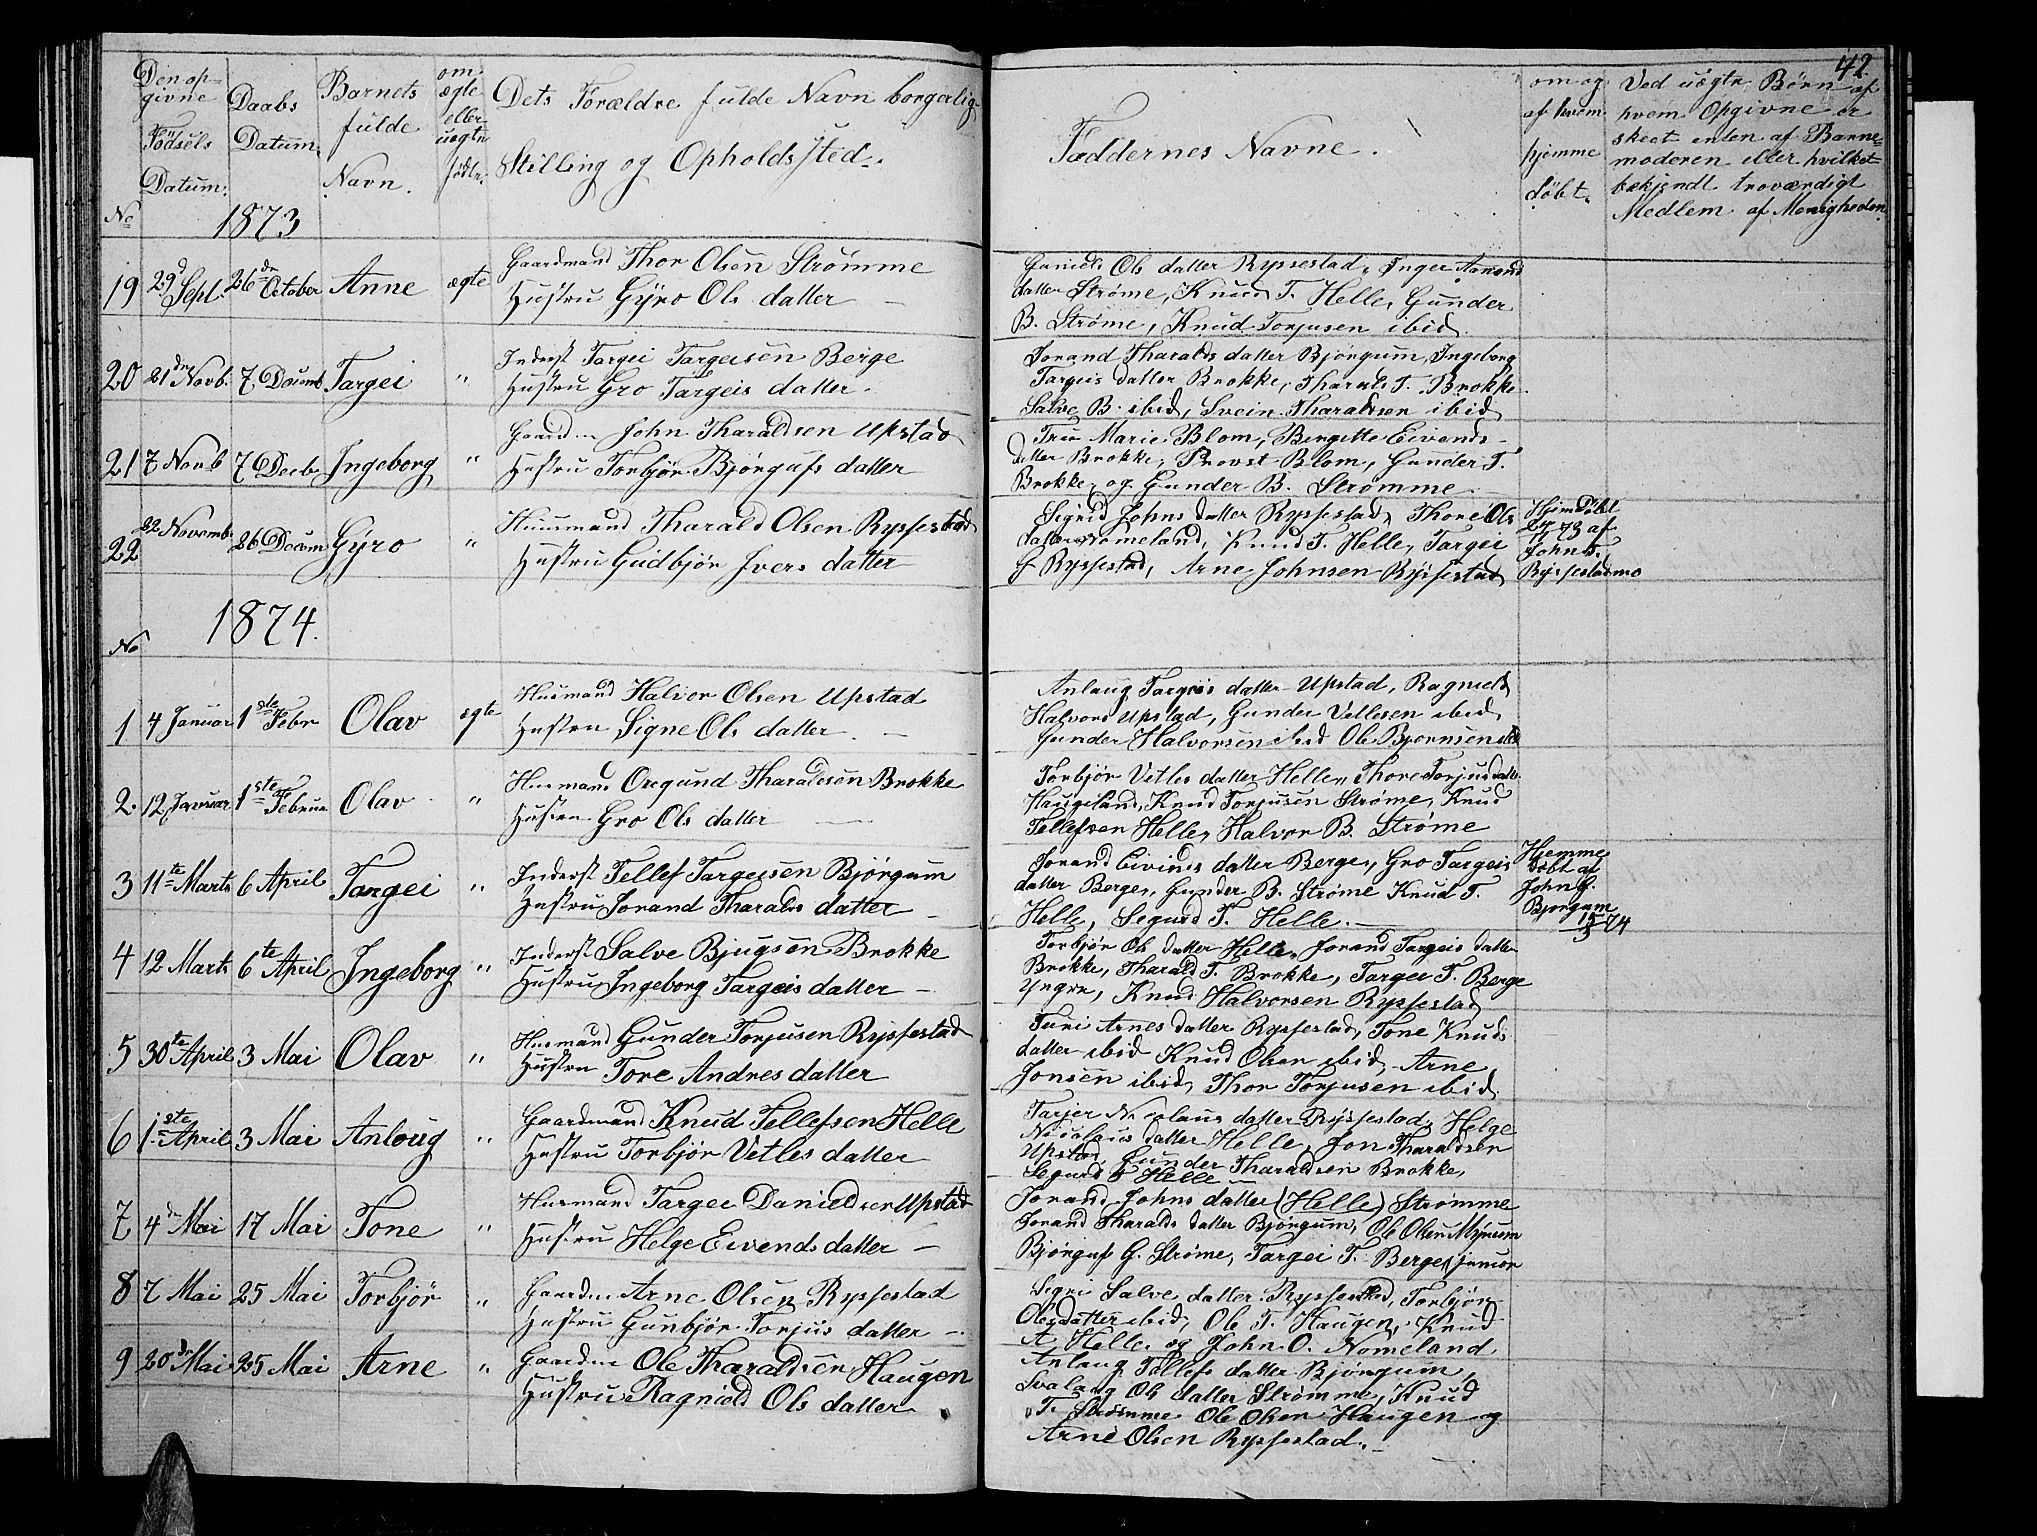 42.
Den op-
givne
Födsels
Datum.
Daabs
Datum.
Barnets
fulde
Navn.
om
ægte
eller
uægte
födte.
Dets Forældre fulde Navn borgerlig
Stilling og Opholdssted.
Faddernes Navne.
om og
af hvem
hjemme
døbt.
Ved uægte Børn af
hvem Opgivne er
skeet enten af Barne-
moderen eller hvilket
bekjendt troværdigt
Medlem af Menigheden
No
1873
19 29d Sept. 26de October Anne ægte Gaardmand Thor Olsen Strømme
Hustru Gÿro Ols datter —
Ols datter Ryssestad, Inger
datter Strøme, Knud T. Helle, Gunder
B. Strøme, Knud Torjusen ibid
20 21de Novb. 7 Decemb Targei " Inderst Targei Targeisen Berge
Hustru Gro Targeis datter.
Jorand Tharalds datter Bjørgum, Ingeborg
Targeis datter Brokke, Tharald T. Brokke
Salve B. ibid, Svein Tharaldsen ibid
21 7 Novb 7 Decb Ingeborg " Gaardm John Tharaldsen Upstad
Hustru Torbjør Bjørgufs datter
Fru Marie Blom, Bergitte Eivends-
datter Brokke, Provst Blom, Gunder T.
Brokke, og Gunder B. Strømme
22 22 Novemb. 26 Decem Gÿro " Huusmand Tharald Olsen Ryssestad
Hustru Gudbjør Ivers datter
Sigrid Johns datter Ryssestad, Thore Ols
datter Nomeland, Knud T. Helle, Targei
G Ryssestad, Arne Johnsen Ryssestad
Hjem Døbt
73 af
John T.
Ryssestadmo
1874.
No
1 4 Januar 1ste Febr Olav ægte Husmand Halvor Olsen Upstad
Hustru Signe Ols datter. —
Anlaug Targeis datter Upstad, Ragnild
Halvors Upstad, Gunder Vetlesen ibid,
Gunder Halvorsen ibid Ole Bjørnsen ibid
2. 12 Januar 1ste Februar Olav " Husmand Ougund Tharaldsen Brokke
Hustru Gro Ols datter —
Torbjør Vetles datter Helle, Thore Torjus datter
Haugeland, Knud Torjusen Strøme, Knud
Tellefsen Helle, Halvor B. Strøme
3 11te Marts 6 April Targei " Inderst Tellef Targeisen Bjørgum
Hustru Jorand Tharalds datter —
Jorand Eivinds datter Berge, Gro Targeis
datter Berge, Gunder B. Strøme Knud T.
Helle, Segurd T. Helle. —
Hjemme
døbt af
John G.
Bjørgum
15/3 74
4 12 Marts 6te April Ingeborg " Inderst Salve Bjugsen Brokke
Hustru Ingeborg Targeis datter —
Torbjør Ols datter Helle, Jorand Targeis datter
Brokke, Tharald T. Brokke, Targei T. Berge
Yngre, Knud Halvorsen Ryssestad
5 30te April 3 Mai Olav " Husmand Gunder Torjusen Ryssestad
Hustru Tore Andres datter
Turi Arnes datter Ryssestad, Tone Knuds
datter ibid Knud Olsen ibid, Arne
Jonsen ibid, Thor Torjusen ibid
6 1ste April 3 Mai Anloug " Gaardmand Knud Tellefsen Helle
Hustru Torbjør Vetles datter
Tarjer Nicolaus datter Ryssestad, Helge
Nicolaus datter Helle, Jon Tharaldsen
Upstad, Gunder Tharaldsen Brokke,
Segurd T Helle —
7 4de Mai 17 Mai Tone " Husmand Targei Danielsen Upstad
Hustru Helge Eivends datter —
Jorand Johns datter (Helle) Strømme
Jorand Tharalds datter Bjørgum, Ole Olsen Myrum
Bjørguf G. Strøme, Targei T. Berge, junior
8 7 Mai 25 Mai Torbjør " Gaardm Arne Olsen Ryssestad
Hustru Gunbjør Torjus datter —.
Sigri Salve datter Ryssestad, Torbjør
Olsdatter ibid, Ole T. Haugen, Knud
A Helle og John O. Nomeland,
9 20de Mai 25 Mai Arne " Gaardm Ole Tharaldsen Haugen
Hustru Ragnild Ols datter
Anlaug Tellefs datter Bjørgum,
Svalaug Ols datter Strømme, Knud
T. Strømme Ole Olsen Haugen og
Arne Olsen Ryssestad.—